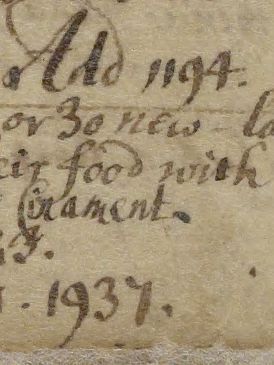 Add 1194.
or 30 new - la
eir food with
Cirament.
43.
. 1937.